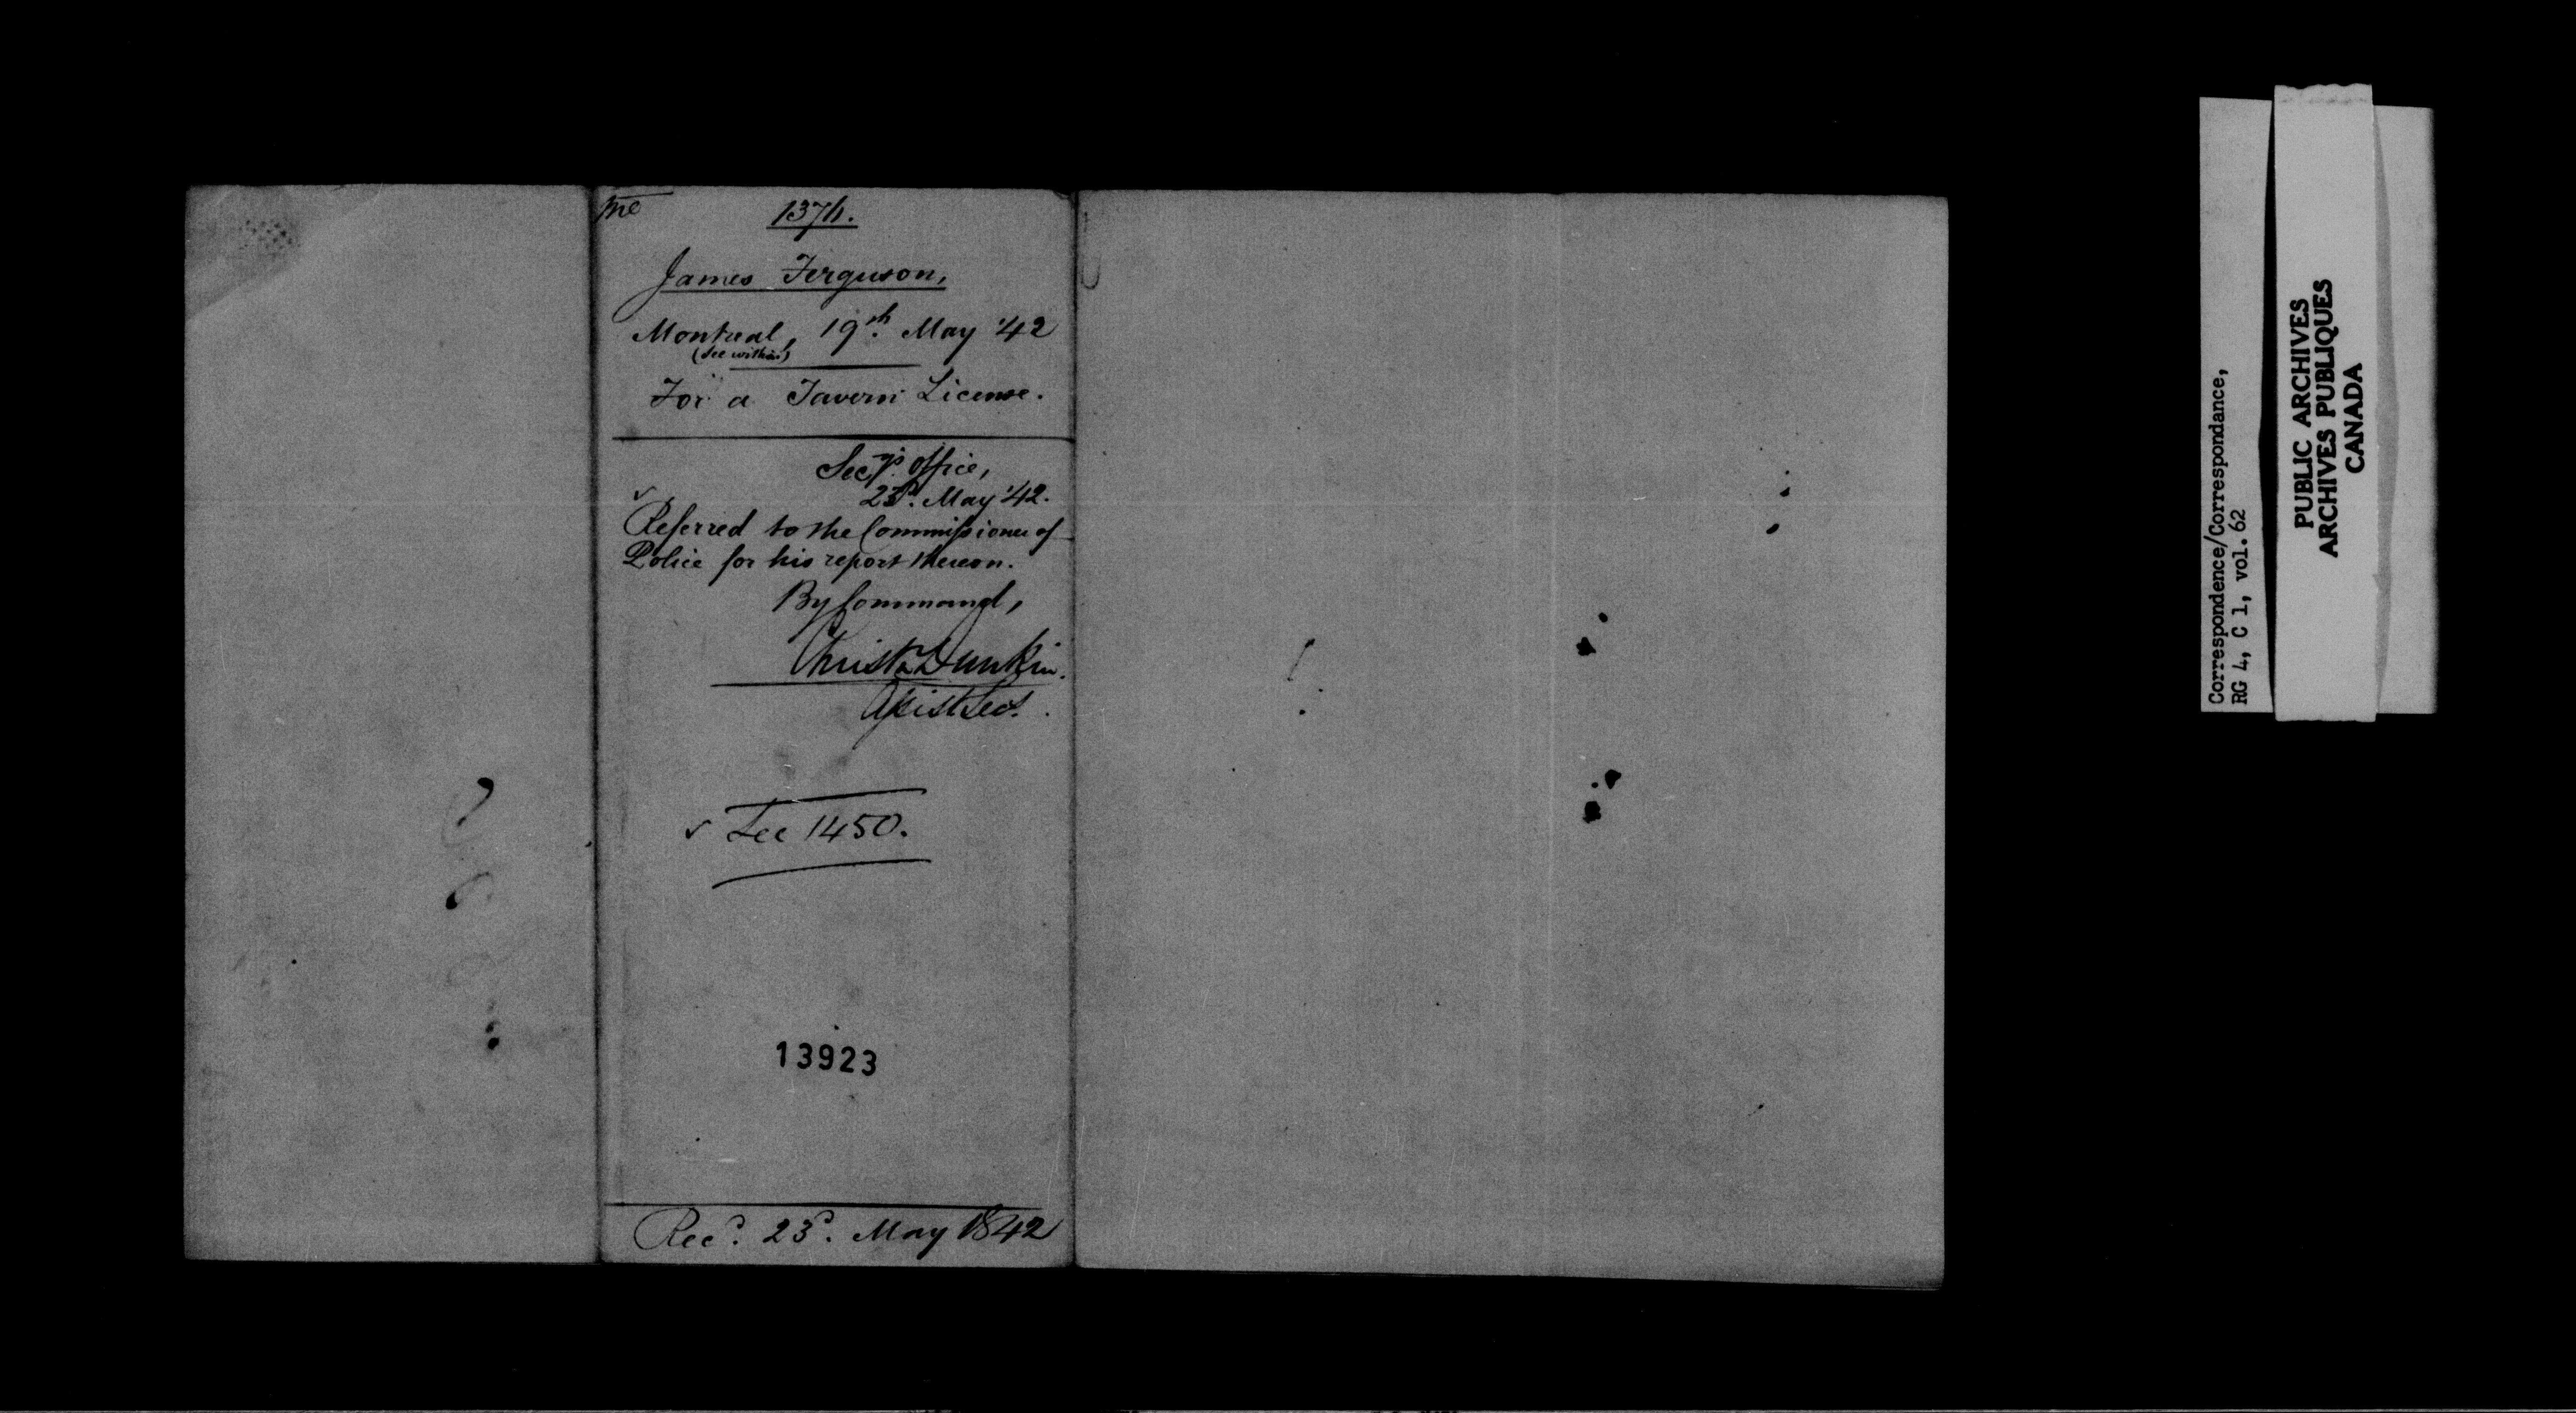 1374.
James Ferguson,
Montreal, 19th May '42
(See within)
For a Tavern License.
Secy's Office,
23d. May '42.
Referred to the Commissioner of
Police for his report thereon.
By Command,
Christr Dunkin.
Assist Secy.
✓ See 1450.
13923
Recd. 23d. May 1842
Correspondence/Correspondance,
RG 4, C 1, vol. 62
PUBLIC ARCHIVES
ARCHIVES PUBLIQUES
CANADA